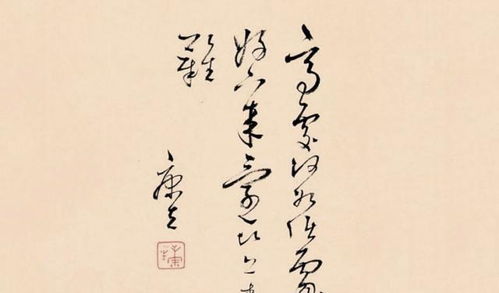 高處何如低處
好下來還比上來
難